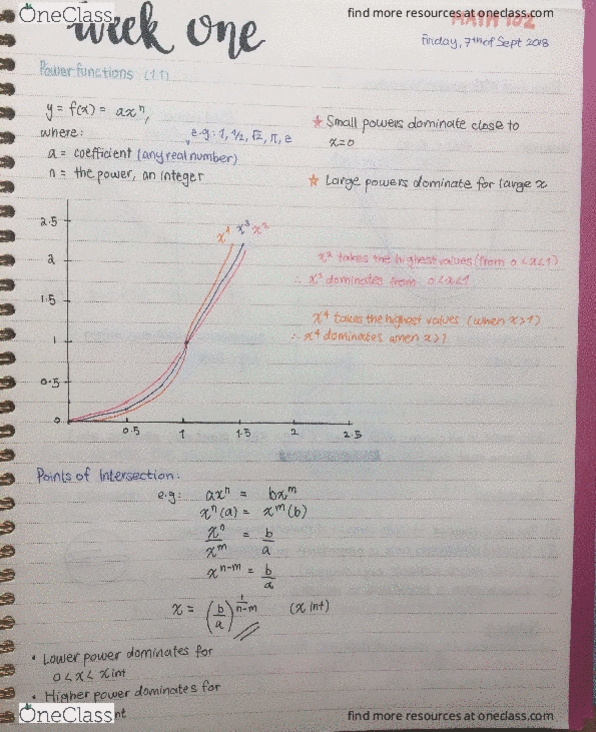 OneClass
find more resources at oneclass.com
week one
MATH 102
Friday, 7th of Sept 2018
Power functions (1.1)
y = f(x) = axⁿ,
where:
e.g: 1, 1/2, √2, π, e
a = coefficient (any real number)
n = the power, an integer
☆ Small powers dominate close to
x=0
☆ Large powers dominate for large x
2.5
2
1.5
1
0.5
0
0.5
1
1.5
2
2.5
x⁴ x³ x²
x² takes the highest values (from 0<x<1)
∴ x² dominates from 0<x<1
x⁴ takes the highest values (when x>1)
∴ x⁴ dominates when x>1
Points of Intersection:
e.g: axⁿ = bxᵐ
xⁿ(a) = xᵐ(b)
xⁿ/xᵐ = b/a
xⁿ⁻ᵐ = b/a
x = (b/a)^(1/(n-m)) (x int)
• Lower power dominates for
0 < x < x int
• Higher power dominates for
OneClass
find more resources at oneclass.com